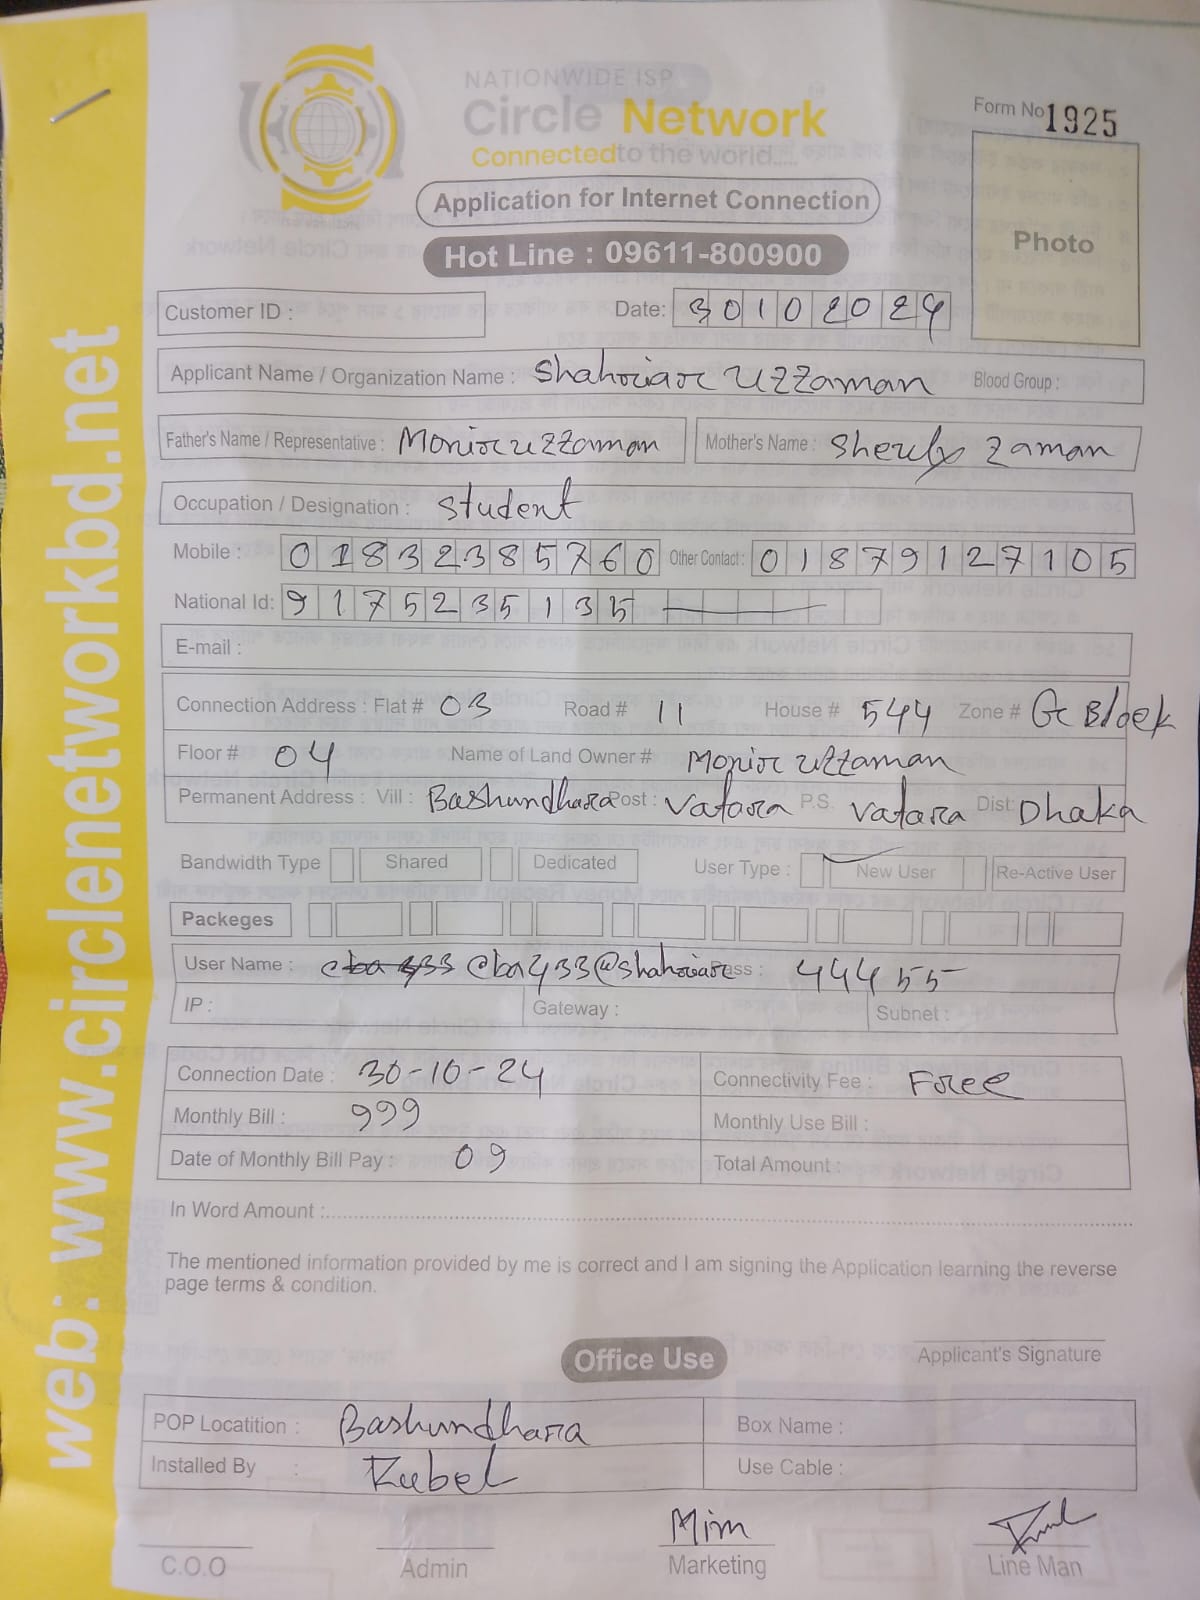 NATIONWIDE ISP
Circle Network
Connected to the world.....
Form No 1925
Application for Internet Connection
Photo
Hot Line : 09611-800900
Customer ID :
Date: 30102024
Applicant Name / Organization Name : Shahriar Uzzaman Blood Group :
Father's Name / Representative : Moniruzzaman Mother's Name : Zaman
Occupation / Designation : Student
Mobile : 01832385760 Other Contact : 01879127105
National Id: 9175235135
E-mail :
Connection Address : Flat # 03 Road # 11 House # 544 Zone # G Block
Floor # 04 Name of Land Owner # Monir Uzzaman
Permanent Address : Vill : Bashundhara Post : Vatara P.S. Vatara Dist: Dhaka
Bandwidth Type Shared Dedicated User Type : New User Re-Active User
Packeges
User Name : @shahriar Pass : 44455
IP : Gateway : Subnet :
Connection Date : 30-10-24 Connectivity Fee : Free
Monthly Bill : 999 Monthly Use Bill :
Date of Monthly Bill Pay : 09 Total Amount :
In Word Amount :
The mentioned information provided by me is correct and I am signing the Application learning the reverse
page terms & condition.
Office Use
Applicant's Signature
POP Locatition : Bashundhara Box Name :
Installed By : Rubel Use Cable :
Mim
C.O.O Admin Marketing Line Man
web: www.circlenetworkbd.net